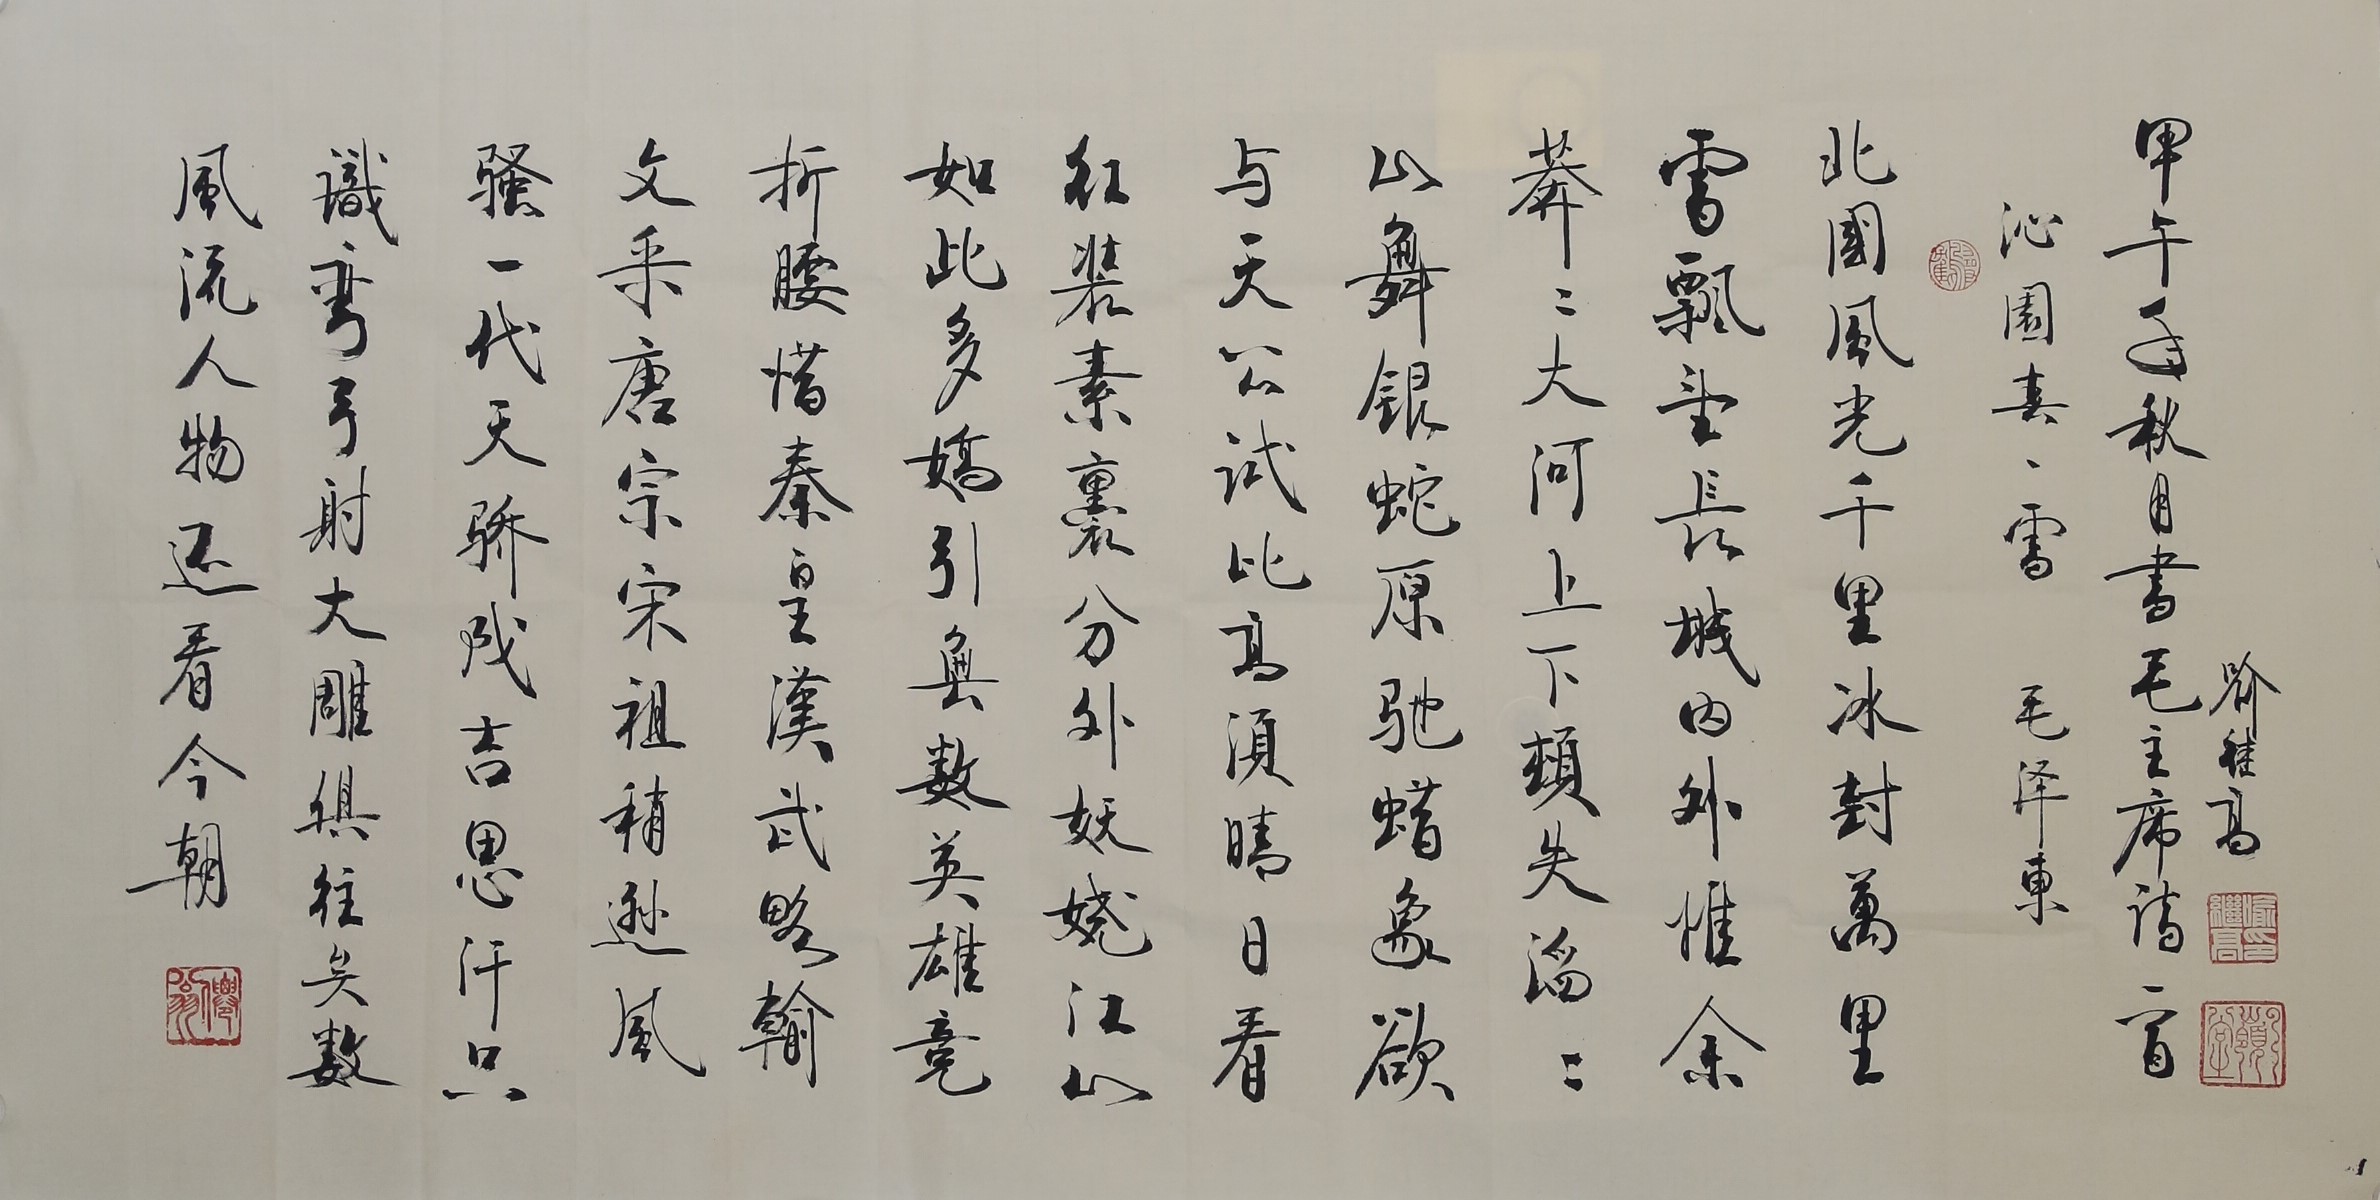 甲午年秋月書毛主席詩一首
喻継高
喻印繼高
沁園春、雪 毛泽東
北國風光千里冰封萬里
雪飄望長城内外惟余
莽〻大河上下頓失滔〻
山舞銀蛇原驰蜡象欲
与天公試比高須晴日看
紅裝素裹分外妖嬈江山
如此多嬌引無數英雄竞
折腰惜秦皇漢武略輸
文采唐宗宋祖稍逊風
骚一代天骄成吉思汗只
識弯弓射大雕俱往矣數
風流人物还看今朝